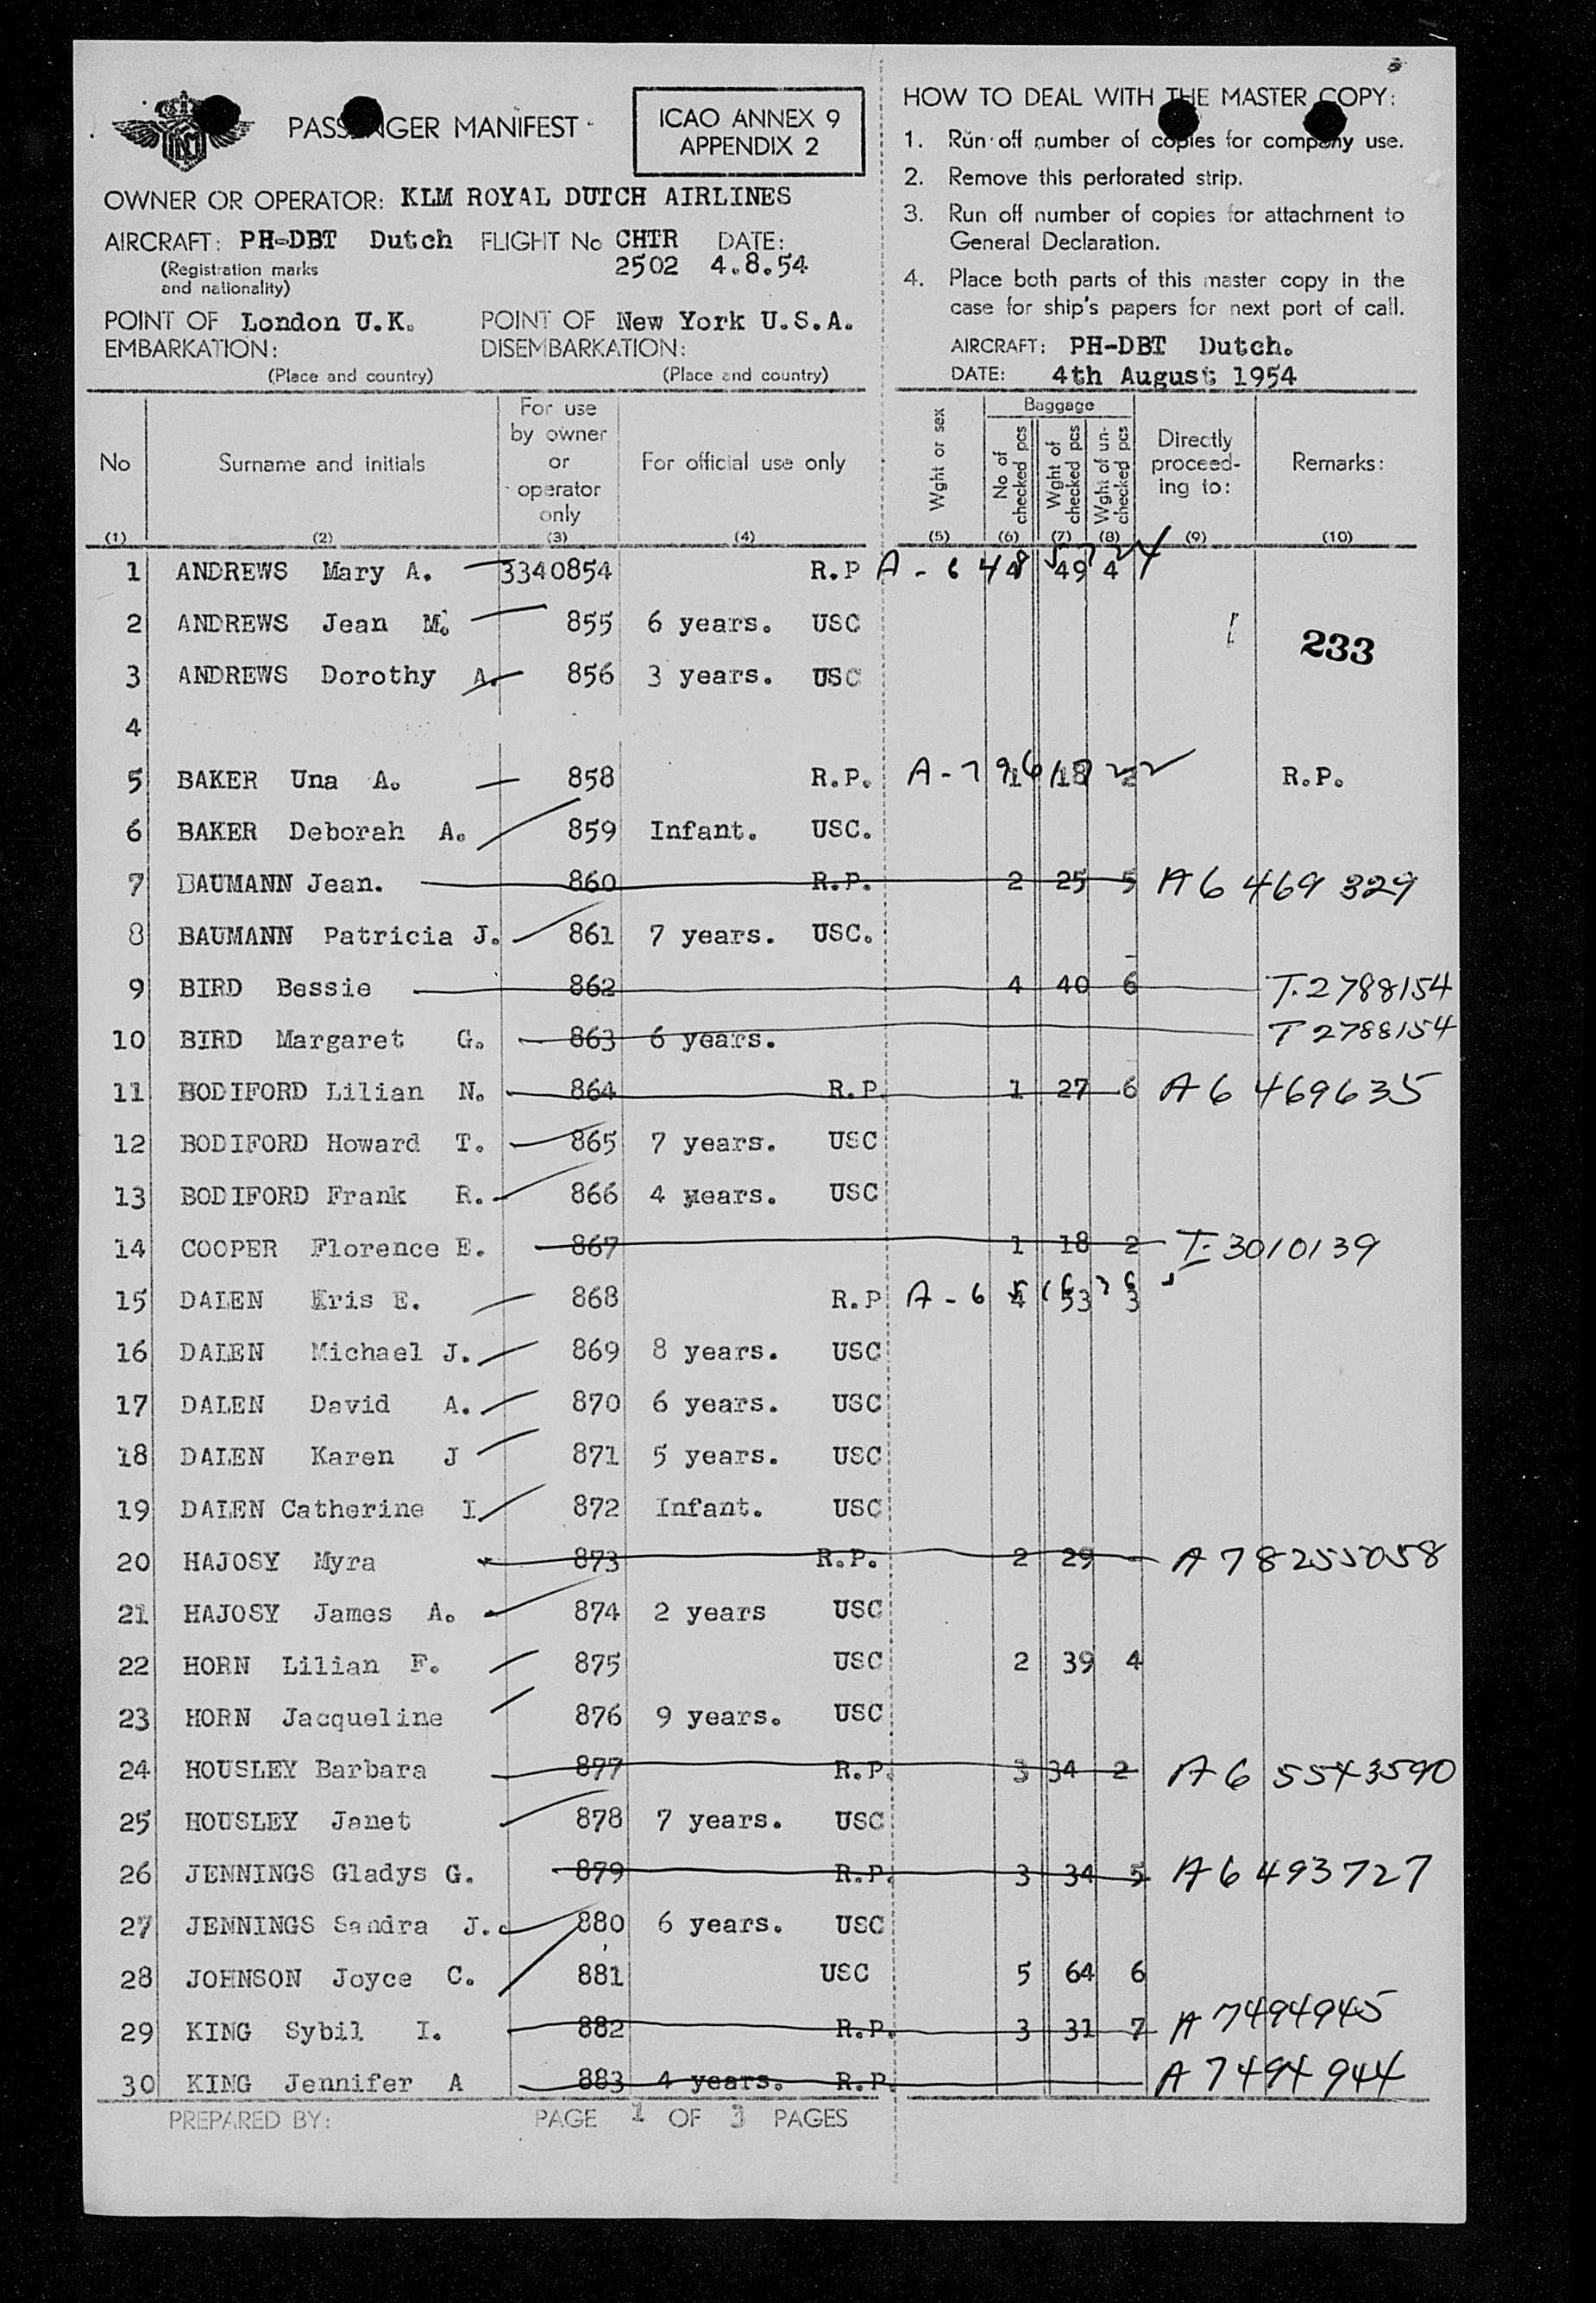 PASSENGER MANIFEST
ICAO ANNEX 9
APPENDIX 2
OWNER OR OPERATOR: KLM ROYAL DUTCH AIRLINES
AIRCRAFT: PH-DBT Dutch FLIGHT No CHTR DATE:
(Registration marks 2502 4.8.54
and nationality)
POINT OF London U.K. POINT OF New York U.S.A.
EMBARKATION: DISEMBARKATION:
(Place and country) (Place and country)
HOW TO DEAL WITH THE MASTER COPY:
1. Run off number of copies for company use.
2. Remove this perforated strip.
3. Run off number of copies for attachment to
General Declaration.
4. Place both parts of this master copy in the
case for ship's papers for next port of call.
AIRCRAFT: PH-DBT Dutch.
DATE: 4th August 1954
No Surname and initials For use by owner or operator only For official use only Wght or sex Baggage No of checked pcs Wght of checked pcs Wght of un-checked pcs Directly proceed-ing to: Remarks:
(1) (2) (3) (4) (5) (6) (7) (8) (9) (10)
1 ANDREWS Mary A. 3340854 R.P A-6 4 49 4
2 ANDREWS Jean M. 855 6 years. USC
233
3 ANDREWS Dorothy A. 856 3 years. USC
4
5 BAKER Una A. 858 R.P. 1 18 2 R.P.
6 BAKER Deborah A. 859 Infant. USC.
7 BAUMANN Jean. 860 R.P. 2 25 5 A6 469 329
8 BAUMANN Patricia J. 861 7 years. USC.
9 BIRD Bessie 862 4 40 6 T.2788154
10 BIRD Margaret G. 863 6 years. T 2788154
11 BODIFORD Lilian N. 864 R.P. 1 27 6 A6 469635
12 BODIFORD Howard T. 865 7 years. USC
13 BODIFORD Frank R. 866 4 years. USC
14 COOPER Florence E. 867 1 18 2 T-3010139
15 DALEN Kris E. 868 R.P 4 53 3
16 DALEN Michael J. 869 8 years. USC
17 DALEN David A. 870 6 years. USC
18 DALEN Karen J 871 5 years. USC
19 DALEN Catherine I 872 Infant. USC
20 HAJOSY Myra 873 R.P. 2 29 - A 78255058
21 HAJOSY James A. 874 2 years USC
22 HORN Lilian F. 875 USC 2 39 4
23 HORN Jacqueline 876 9 years. USC
24 HOUSLEY Barbara 877 R.P. 3 34 2 A6 5543590
25 HOUSLEY Janet 878 7 years. USC
26 JENNINGS Gladys G. 879 R.P. 3 34 5 A6 493727
27 JENNINGS Sandra J. 880 6 years. USC
28 JOHNSON Joyce C. 881 USC 5 64 6
29 KING Sybil I. 882 R.P. 3 31 7 A 7494945
30 KING Jennifer A 883 4 years. R.P. A 7494944
PREPARED BY: PAGE 1 OF 3 PAGES